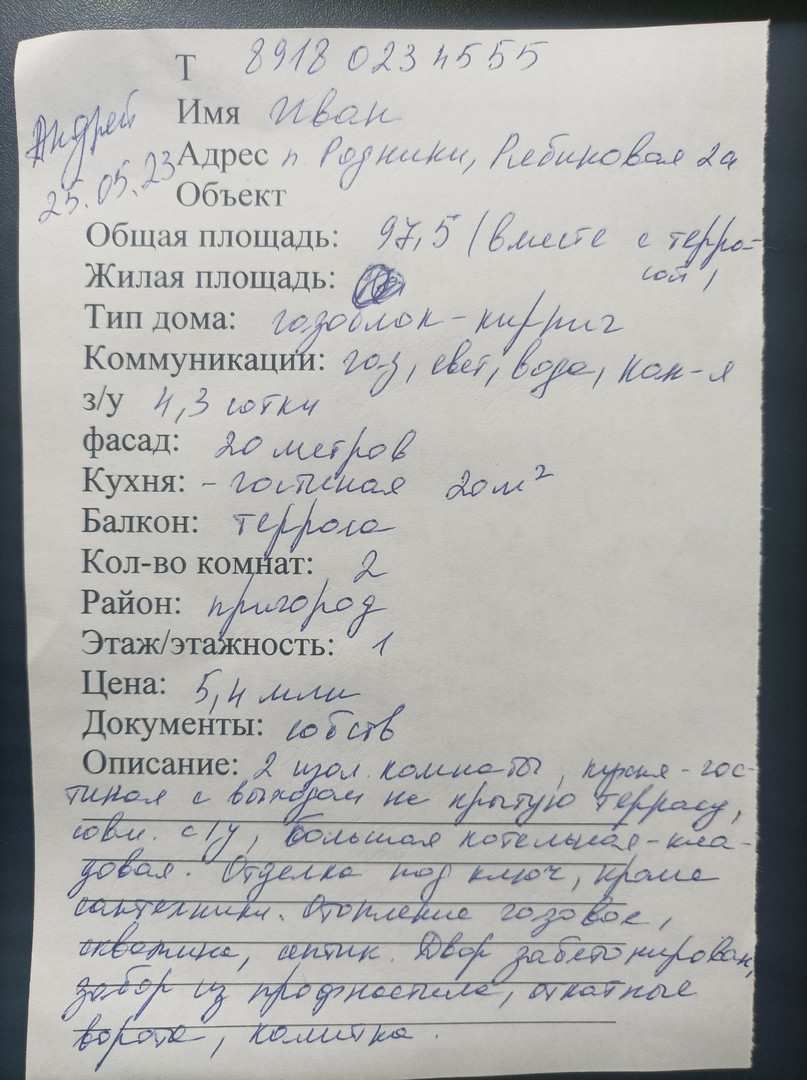 Т 8918 023 4555
Андрей
Имя Иван
25.05.23
Адрес п. Родники, Рябиновая 2а
Объект
Общая площадь: 97,5 (вместе с терра-
Жилая площадь: сой)
Тип дома: газоблок - кирпич
Коммуникации: газ, свет, вода, кан-я
з/у 4,3 сотки
фасад: 20 метров
Кухня: - гостиная 20 м²
Балкон: терраса
Кол-во комнат: 2
Район: пригород
Этаж/этажность: 1
Цена: 5,4 млн
Документы: собств
Описание: 2 изол. комнаты, кухня - гос-
тиная с выходом на крытую террасу,
совм. с/у, большая котельная - кла-
довая. Отделка под ключ, кроме
сантехники. Отопление газовое,
скважина, септик. Двор забетонирован,
забор из профнастила, откатные
ворота, калитка.